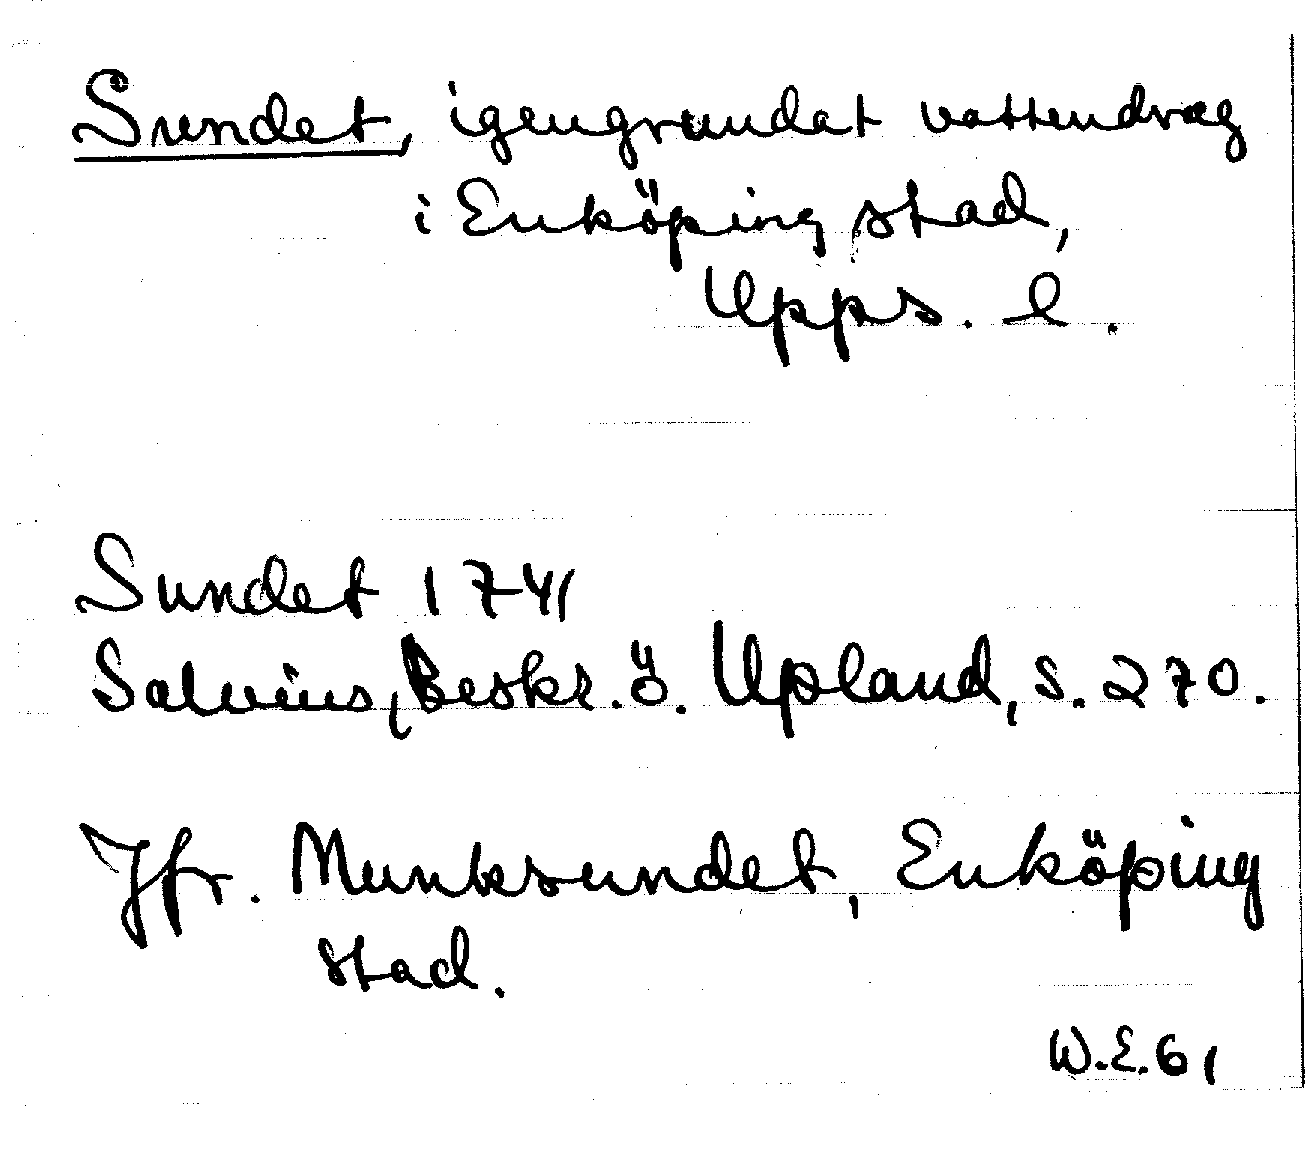 Sundet, igengrundat vattendrag
i Enköping stad,
Upps. l.
Sundet 1741
Salvius, Beskr. ö. Upland, s. 270.
Jfr. Munksundet, Enköping
stad.
W.E.61